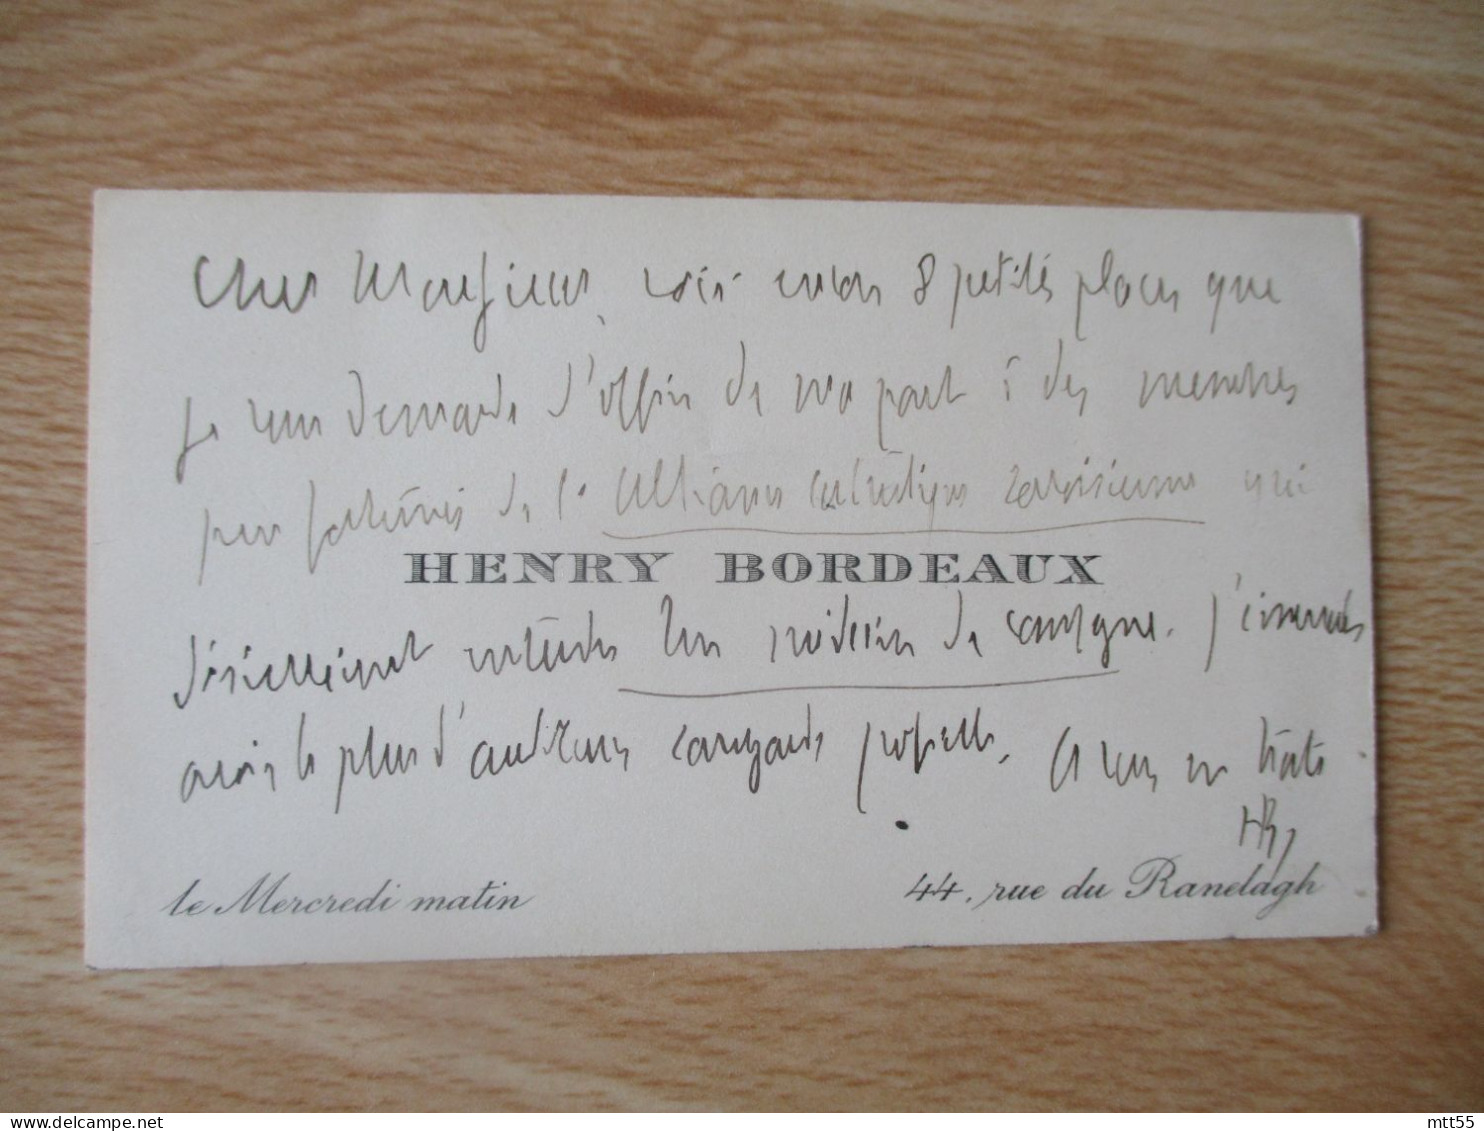 Cher Monsieur, voici encore 8 petites places que
je vous demande d'offrir de ma part à des membres
peu fortunés de l'Alliance catholique savoisienne qui
HENRY BORDEAUX
désireraient entendre Un médecin de campagne. J'aimerais
avoir le plus d'auditeurs savoyards possible. A vous en hâte
HB
le Mercredi matin
44, rue du Ranelagh
mtt55